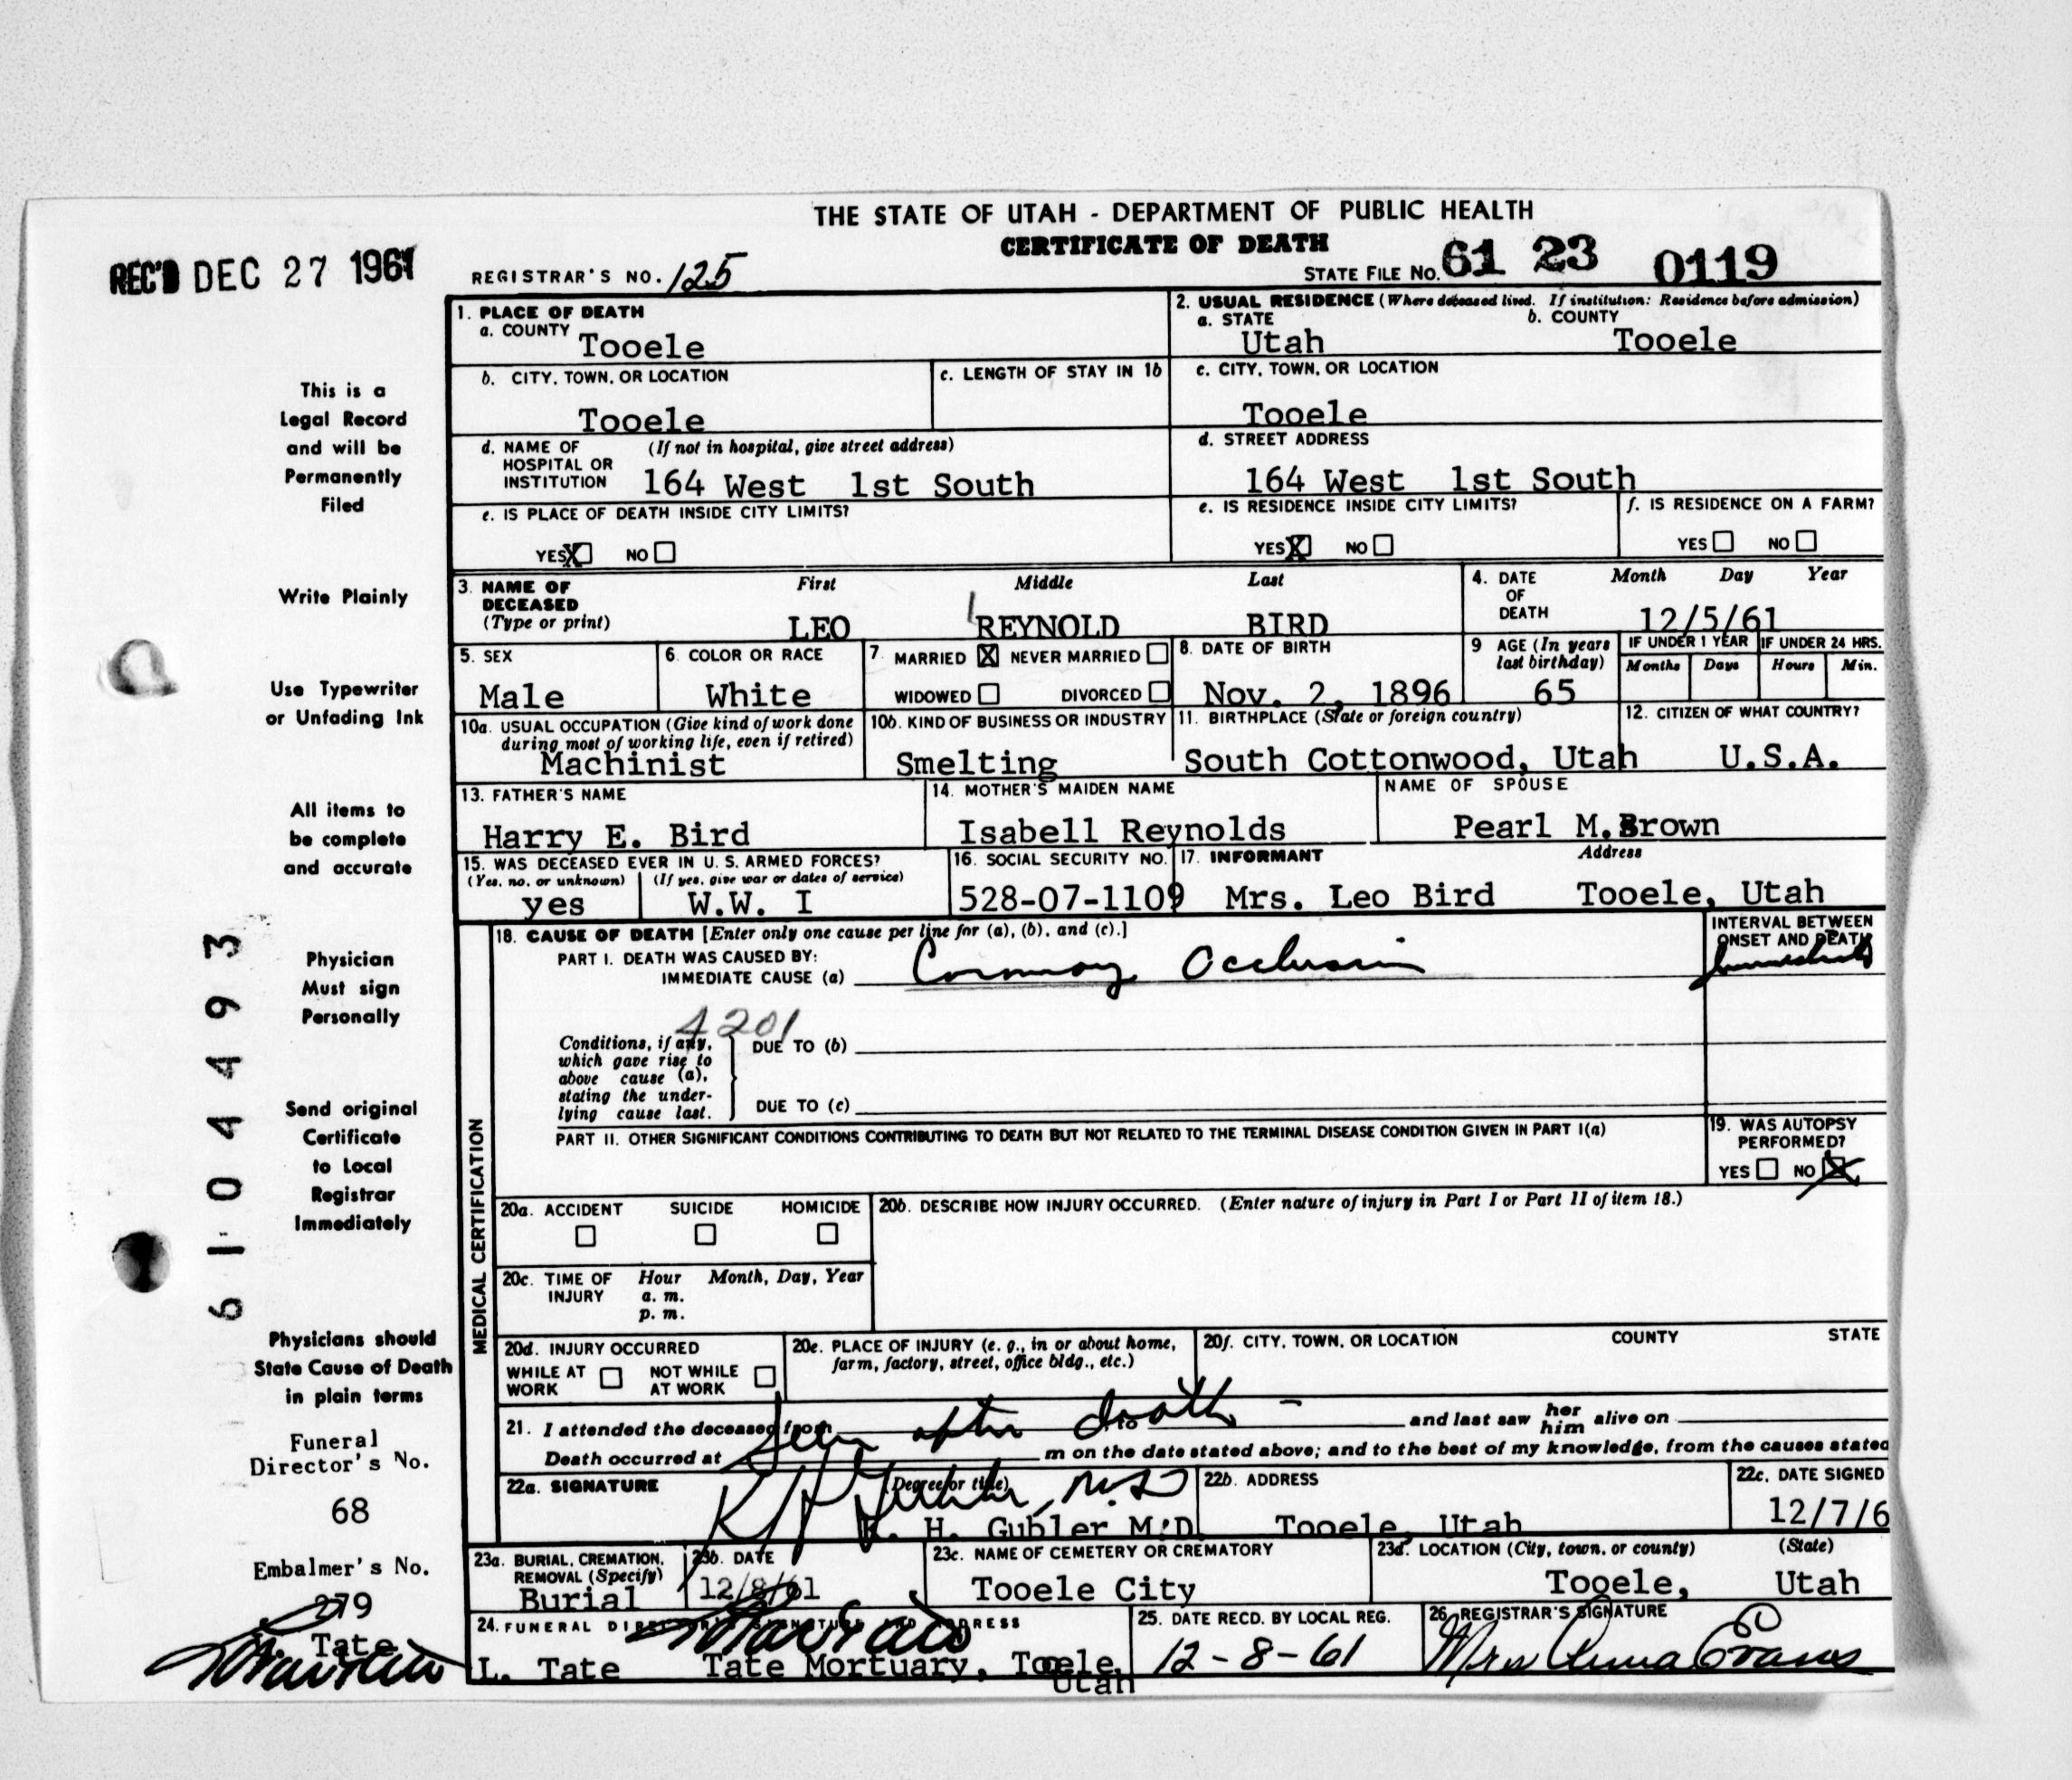 THE STATE OF UTAH - DEPARTMENT OF PUBLIC HEALTH
CERTIFICATE OF DEATH
REC'D DEC 27 1961
REGISTRAR'S NO. 125
STATE FILE NO. 61 23 0119
This is a
Legal Record
and will be
Permanently
Filed
Write Plainly
Use Typewriter
or Unfading Ink
All items to
be complete
and accurate
Physician
Must sign
Personally
Send original
Certificate
to Local
Registrar
Immediately
Physicians should
State Cause of Death
in plain terms
Funeral
Director's No.
68
Embalmer's No.
279
Tate
6104493
1. PLACE OF DEATH
a. COUNTY
Tooele
2. USUAL RESIDENCE (Where deceased lived. If institution: Residence before admission)
a. STATE b. COUNTY
Utah Tooele
b. CITY, TOWN, OR LOCATION
Tooele
c. LENGTH OF STAY IN 1b
c. CITY, TOWN, OR LOCATION
Tooele
d. NAME OF (If not in hospital, give street address)
HOSPITAL OR
INSTITUTION 164 West 1st South
d. STREET ADDRESS
164 West 1st South
e. IS PLACE OF DEATH INSIDE CITY LIMITS?
YES X NO
e. IS RESIDENCE INSIDE CITY LIMITS?
YES X NO
f. IS RESIDENCE ON A FARM?
YES NO
3. NAME OF First Middle Last
DECEASED
(Type or print) LEO REYNOLD BIRD
4. DATE Month Day Year
OF
DEATH 12/5/61
5. SEX
Male
6. COLOR OR RACE
White
7. MARRIED X NEVER MARRIED
WIDOWED DIVORCED
8. DATE OF BIRTH
Nov. 2, 1896
9 AGE (In years
last birthday)
65
IF UNDER 1 YEAR IF UNDER 24 HRS.
Months Days Hours Min.
10a. USUAL OCCUPATION (Give kind of work done
during most of working life, even if retired)
Machinist
10b. KIND OF BUSINESS OR INDUSTRY
Smelting
11. BIRTHPLACE (State or foreign country)
South Cottonwood, Utah
12. CITIZEN OF WHAT COUNTRY?
U.S.A.
13. FATHER'S NAME
Harry E. Bird
14. MOTHER'S MAIDEN NAME
Isabell Reynolds
NAME OF SPOUSE
Pearl M. Brown
15. WAS DECEASED EVER IN U. S. ARMED FORCES?
(Yes, no, or unknown) (If yes, give war or dates of service)
yes W.W. I
16. SOCIAL SECURITY NO.
528-07-1109
17. INFORMANT Address
Mrs. Leo Bird Tooele, Utah
MEDICAL CERTIFICATION
18. CAUSE OF DEATH [Enter only one cause per line for (a), (b), and (c).]
PART I. DEATH WAS CAUSED BY:
IMMEDIATE CAUSE (a) Coronary Occlusion
INTERVAL BETWEEN
ONSET AND DEATH
4201
Conditions, if any,
which gave rise to
above cause (a),
stating the under-
lying cause last.
DUE TO (b)
DUE TO (c)
PART II. OTHER SIGNIFICANT CONDITIONS CONTRIBUTING TO DEATH BUT NOT RELATED TO THE TERMINAL DISEASE CONDITION GIVEN IN PART I(a)
19. WAS AUTOPSY
PERFORMED?
YES NO X
20a. ACCIDENT SUICIDE HOMICIDE
20b. DESCRIBE HOW INJURY OCCURRED. (Enter nature of injury in Part I or Part II of item 18.)
20c. TIME OF Hour Month, Day, Year
INJURY a. m.
p. m.
20d. INJURY OCCURRED
WHILE AT NOT WHILE
WORK AT WORK
20e. PLACE OF INJURY (e. g., in or about home,
farm, factory, street, office bldg., etc.)
20f. CITY, TOWN, OR LOCATION COUNTY STATE
Seen after death -
21. I attended the deceased from to and last saw her him alive on
Death occurred at m on the date stated above; and to the best of my knowledge, from the causes stated
22a. SIGNATURE (Degree or title)
K H Gubler, M.D
K. H. Gubler M.D.
22b. ADDRESS
Tooele, Utah
22c. DATE SIGNED
12/7/6
23a. BURIAL, CREMATION,
REMOVAL (Specify)
Burial
23b. DATE
12/8/61
23c. NAME OF CEMETERY OR CREMATORY
Tooele City
23d. LOCATION (City, town, or county) (State)
Tooele, Utah
24. FUNERAL DIRECTOR'S SIGNATURE AND ADDRESS
L. Tate Tate Mortuary, Tooele,
Utah
25. DATE RECD. BY LOCAL REG.
12-8-61
26. REGISTRAR'S SIGNATURE
Mrs Anna Evans